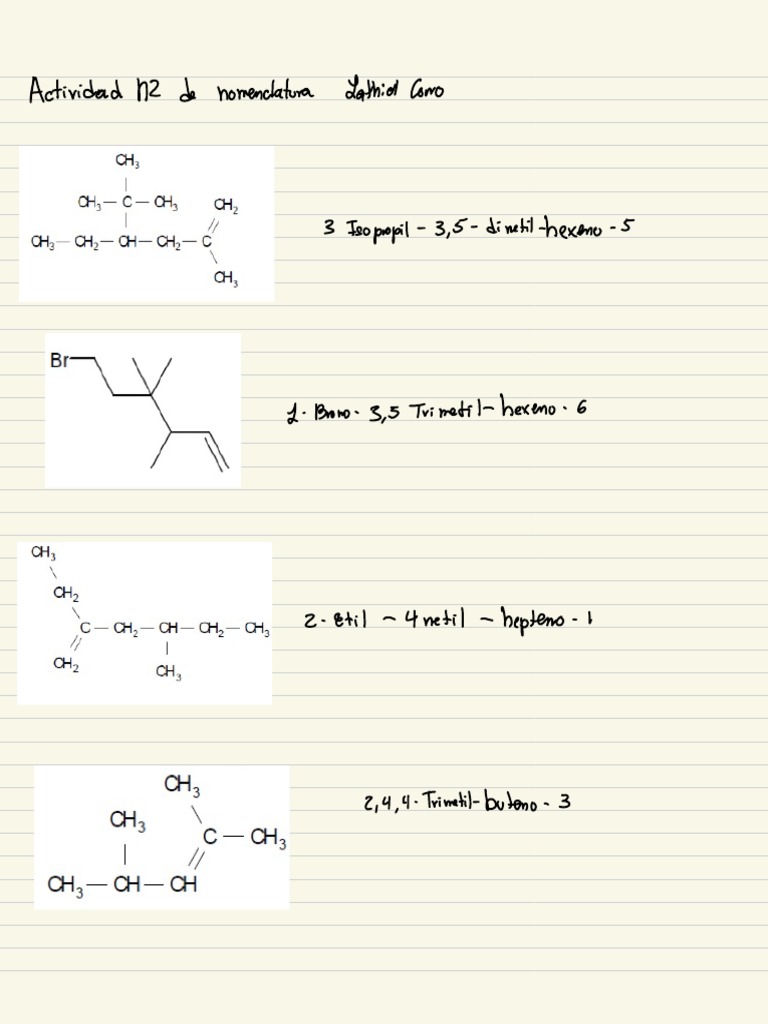 Actividad N2 de nomenclatura
CH3
CH3 — C — CH3 CH2
CH3 — CH2 — CH — CH2 — C
CH3
3 Isopropil - 3,5 - dimetil - hexeno - 5
Br
1 - Bromo - 3,5 Trimetil - hexeno - 6
CH3
CH2
C — CH2 — CH — CH2 — CH3
CH2
CH3
2 - Etil - 4 metil - hepteno - 1
CH3
CH3
C — CH3
CH3 — CH — CH
2,4,4 - Trimetil - buteno - 3